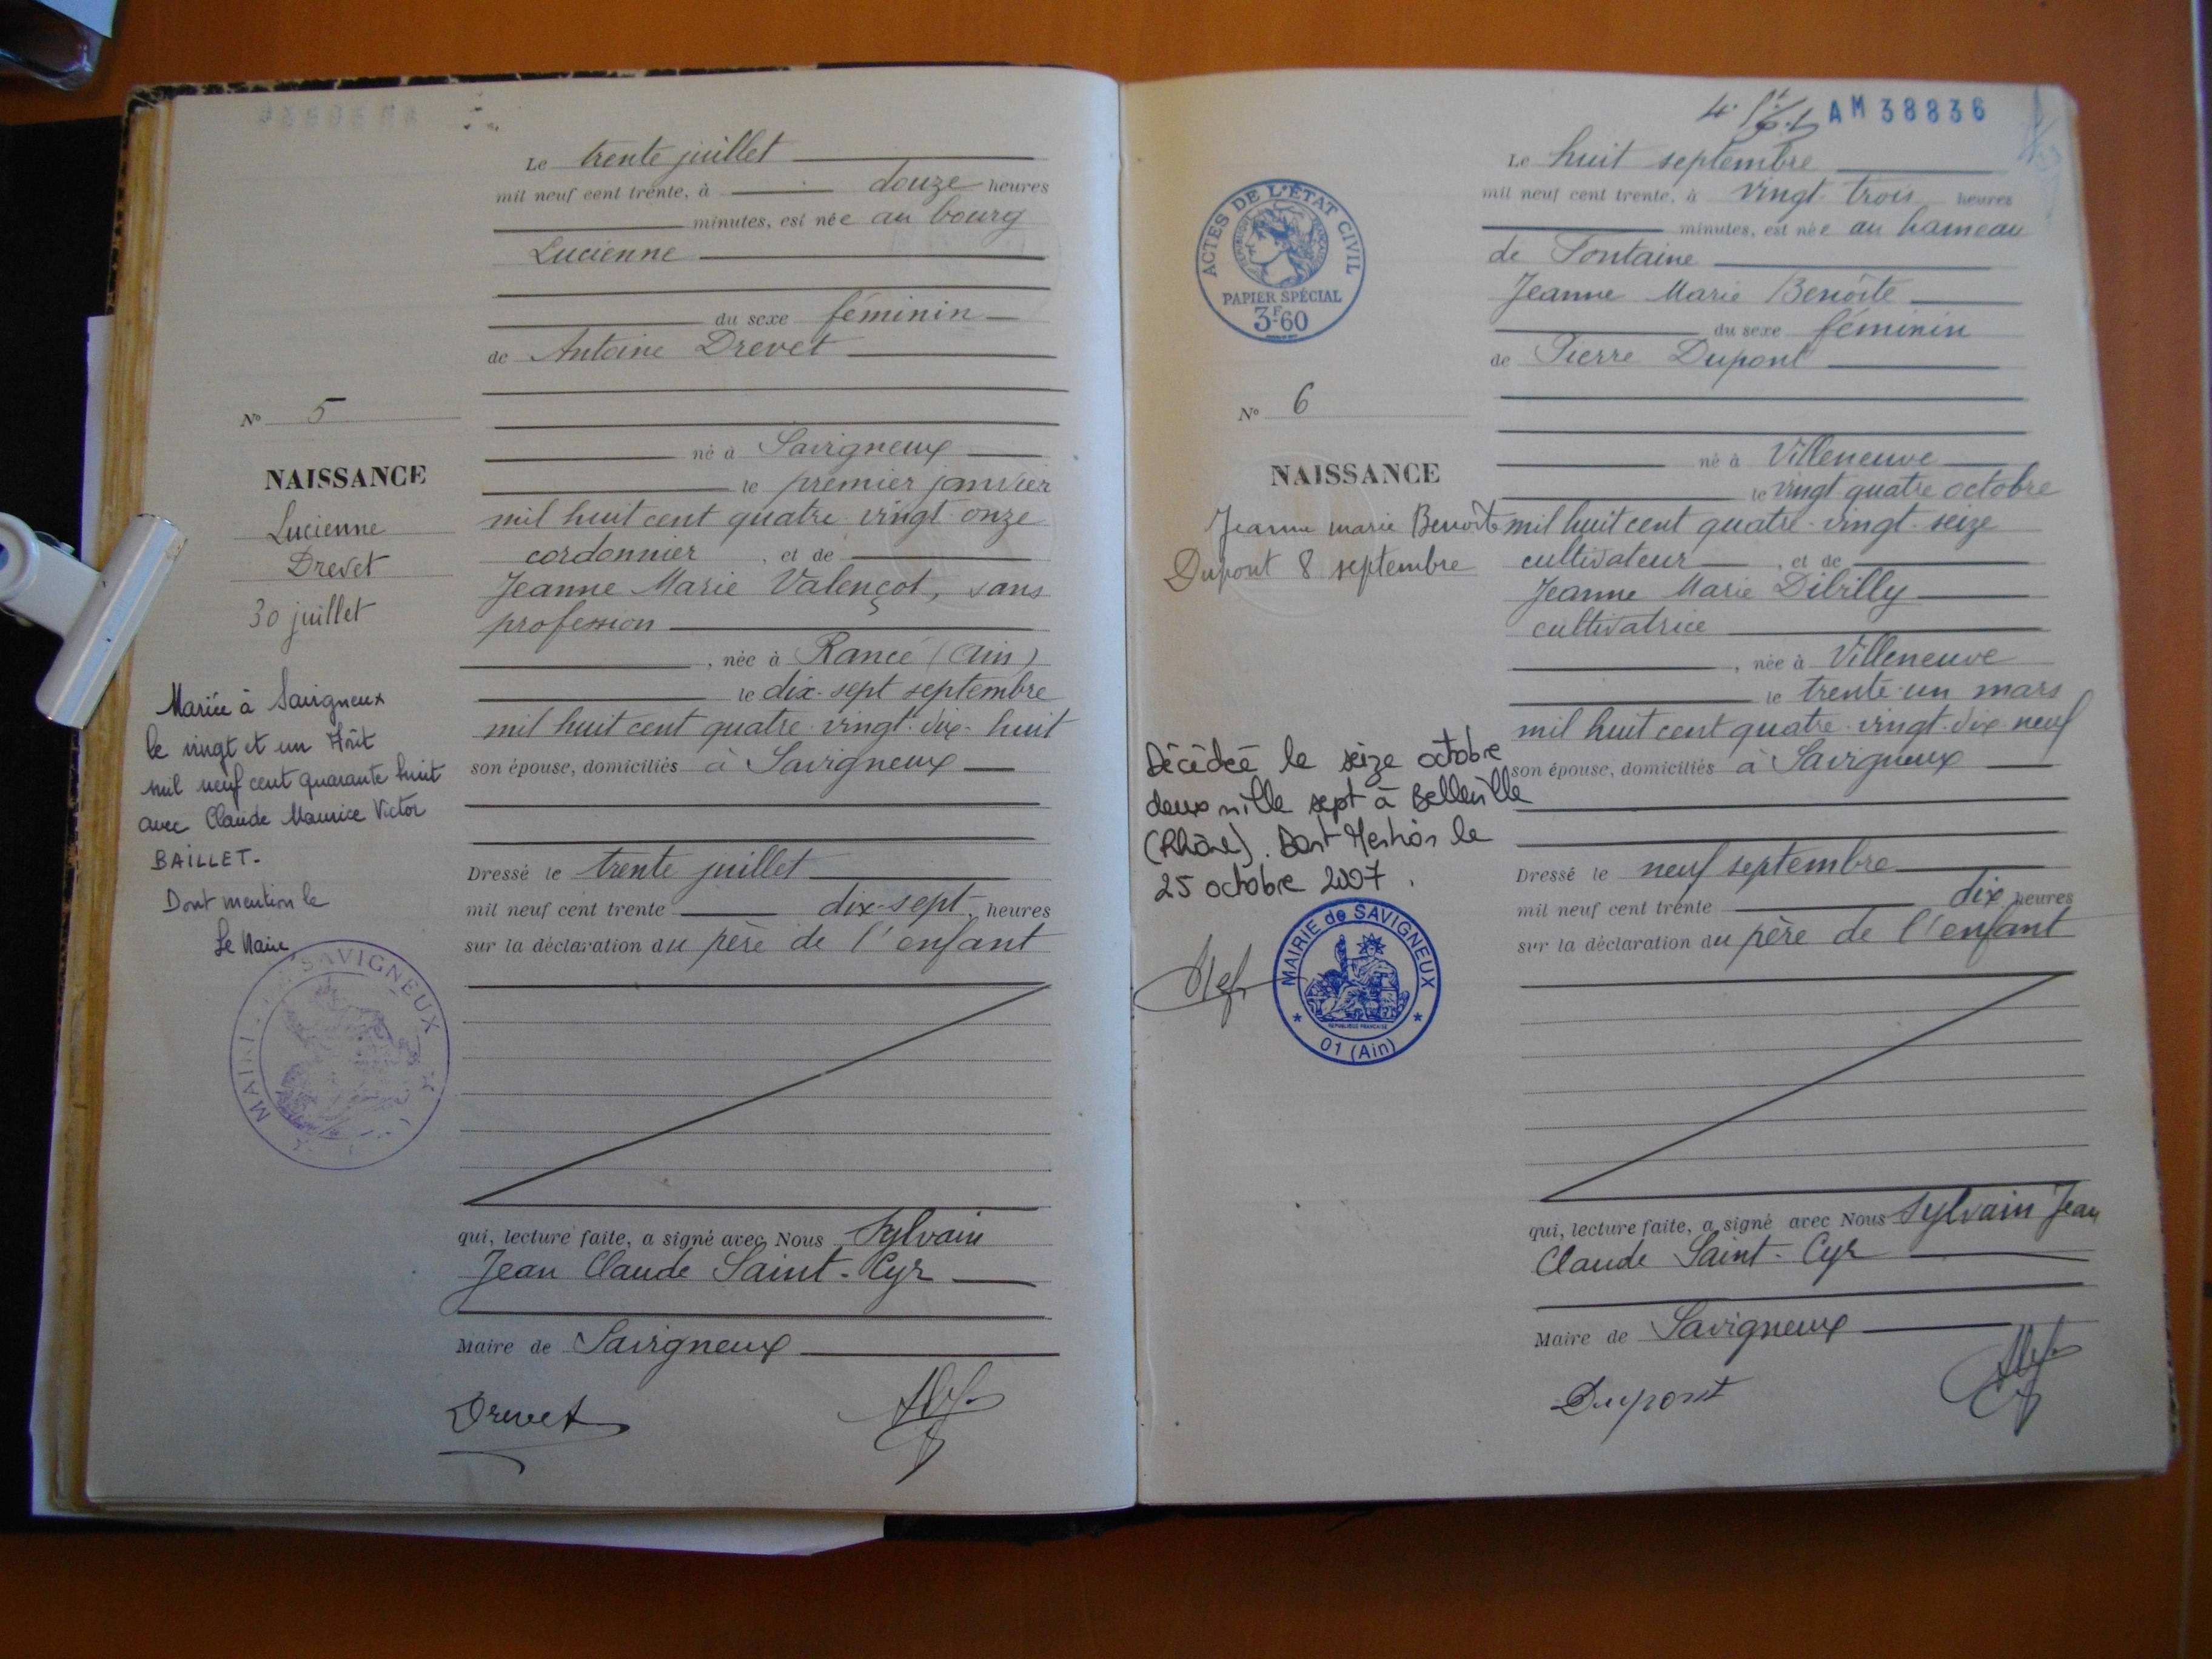 Le trente juillet
mil neuf cent trente, à douze heures
minutes, est née au bourg
Lucienne
du sexe féminin
de Antoine Drevet
né à Savigneux
le premier janvier
mil huit cent quatre vingt onze
cordonnier, et de
Jeanne Marie Valençot, sans
profession
, née à Rancé (Ain)
le dix-sept septembre
mil huit cent quatre-vingt-dix-huit
son épouse, domiciliés à Savigneux
Dressé le trente juillet
mil neuf cent trente dix-sept heures
sur la déclaration du père de l'enfant
qui, lecture faite, a signé avec Nous Sylvain
Jean Claude Saint-Cyr
Maire de Savigneux
Drevet
N° 5
NAISSANCE
Lucienne
Drevet
30 juillet
Mariée à Savigneux
le vingt et un Août
mil neuf cent quarante huit
avec Claude Maurice Victor
BAILLET.
Dont mention le
Le Maire
MAIRIE SAVIGNEUX
AM 38836
Le huit septembre
mil neuf cent trente, à vingt trois heures
minutes, est née au hameau
de Fontaine
Jeanne Marie Benoîte
du sexe féminin
de Pierre Dupont
né à Villeneuve
le vingt quatre octobre
mil huit cent quatre-vingt-seize
cultivateur, et de
Jeanne Marie Dibilly
cultivatrice
, née à Villeneuve
le trente-un mars
mil huit cent quatre-vingt-dix-neuf
son épouse, domiciliés à Savigneux
Dressé le neuf septembre
mil neuf cent trente dix heures
sur la déclaration du père de l'enfant
qui, lecture faite, a signé avec Nous Sylvain Jean
Claude Saint-Cyr
Maire de Savigneux
Dupont
ACTES DE L'ÉTAT CIVIL
RÉPUBLIQUE FRANÇAISE
PAPIER SPÉCIAL
3F60
N° 6
NAISSANCE
Jeanne marie Benoîte
Dupont 8 septembre
Décédée le seize octobre
deux mille sept à Belleville
(Rhône). Dont Mention le
25 octobre 2007.
MAIRIE de SAVIGNEUX
RÉPUBLIQUE FRANÇAISE
01 (Ain)